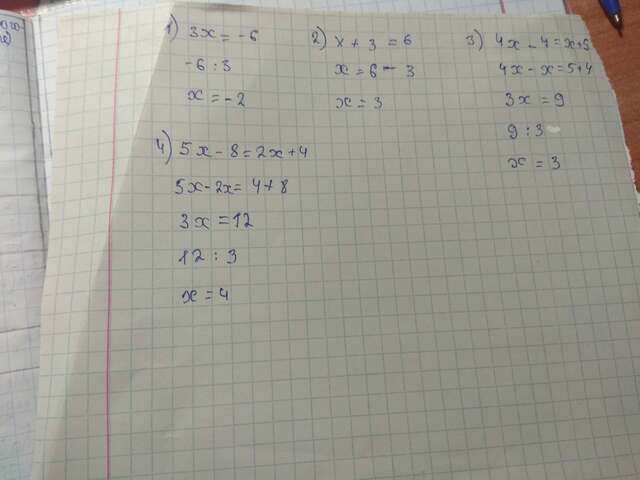 1) 3x = -6
-6 : 3
x = -2
2) x + 3 = 6
x = 6 - 3
x = 3
3) 4x - 4 = x+5
4x - x = 5+4
3x = 9
9 : 3
x = 3
4) 5x - 8 = 2x + 4
5x - 2x = 4 + 8
3x = 12
12 : 3
x = 4